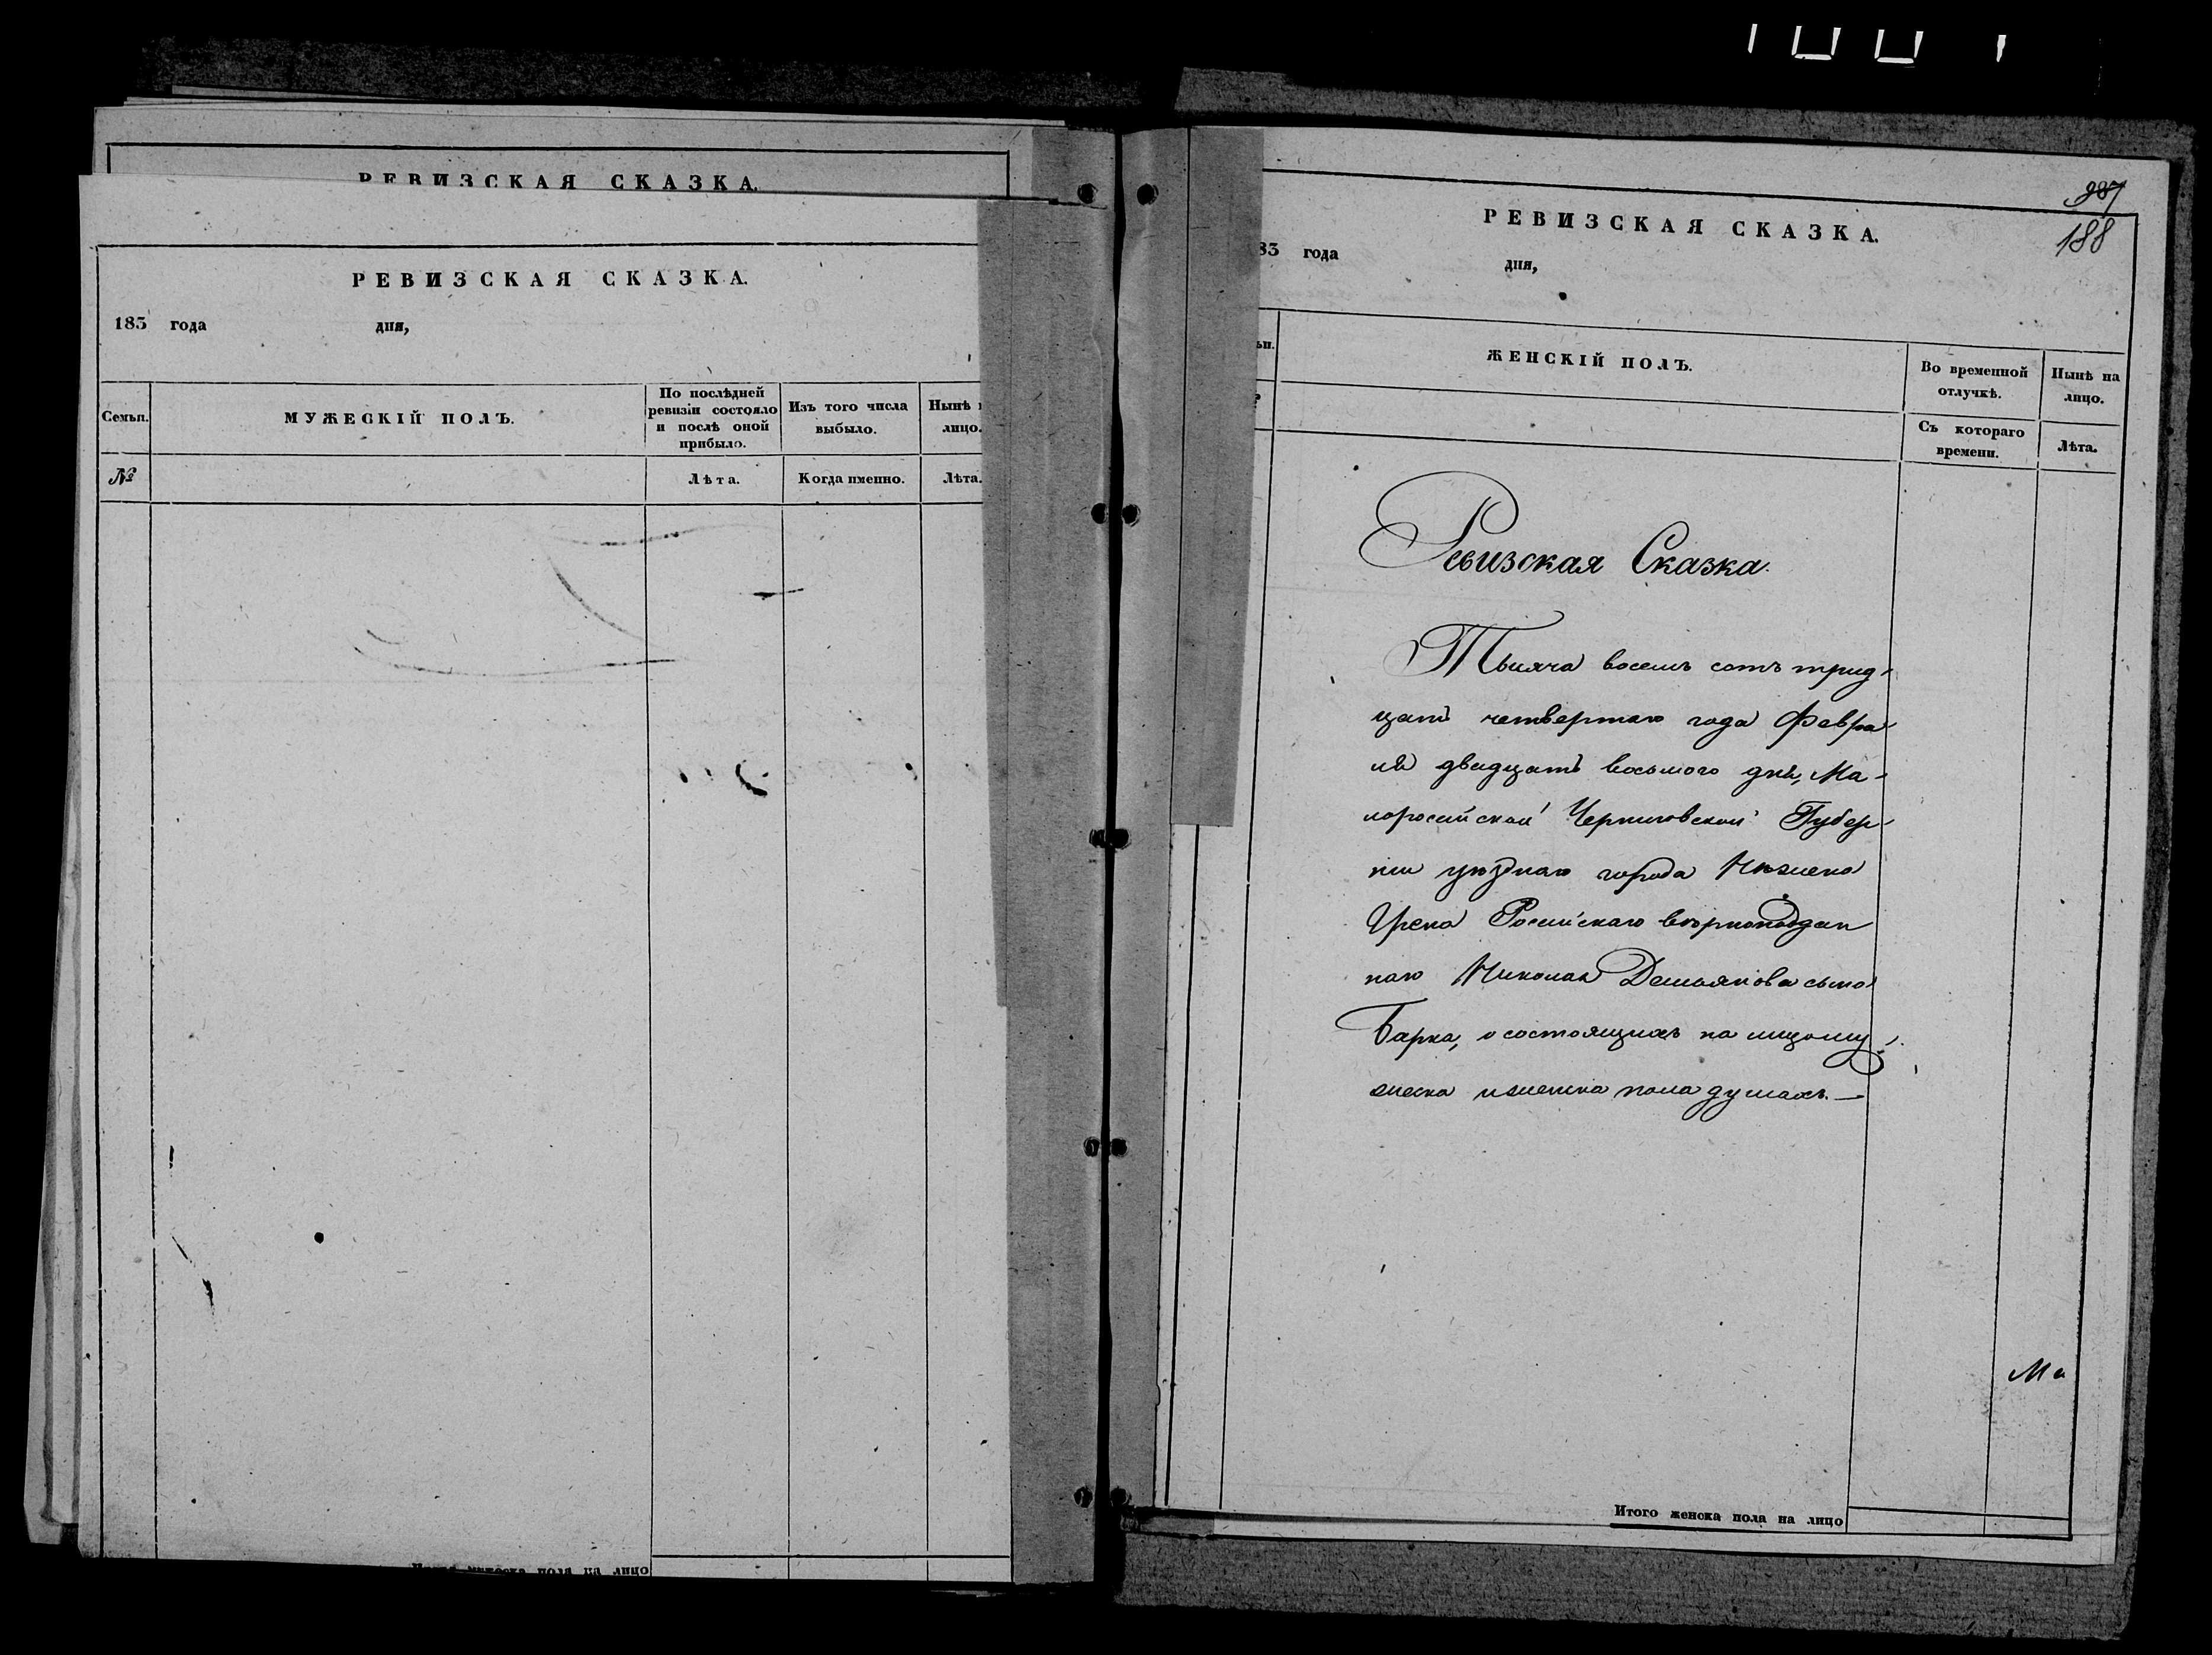 РЕВИЗСКАЯ СКАЗКА.
РЕВИЗСКАЯ СКАЗКА.
183 года дня,
Семьи.
МУЖЕСКІЙ ПОЛЪ.
По послѣдней
ревизіи состояло
и послѣ оной
прибыло.
Изъ того числа
выбыло.
Нынѣ
лицо.
№
Лѣта.
Когда именно.
Лѣта.
пола на лицо
287
188
РЕВИЗСКАЯ СКАЗКА.
83 года дня,
ьи.
ЖЕНСКІЙ ПОЛЪ.
Во временной
отлучкѣ.
Нынѣ на
лицо.
Съ котораго
времени.
Лѣта.
Ревизская Сказка.
Тысяча восемь сотъ трид-
цать четвертаго года Февра-
ля двадцать восьмого дня, Ма-
лоросійской Черниговской Губер-
ніи уѣзднаго города Нѣжина
Грека Російскаго вѣрноподдан
наго Николая Демьянова сына
Барка, о состоящихъ на лицо му-
жеска и женска пола душахъ.—
Ма
Итого женска пола на лицо